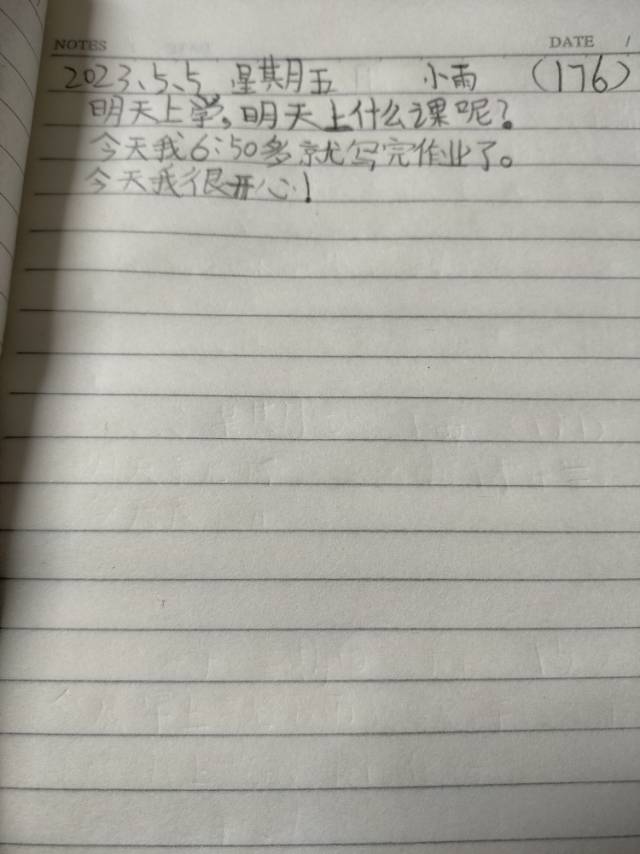 NOTES DATE /
2023、5、5、星期五 小雨 (176)
明天上学,明天上什么课呢?
今天我6:50多就写完作业了。
今天我很开心!